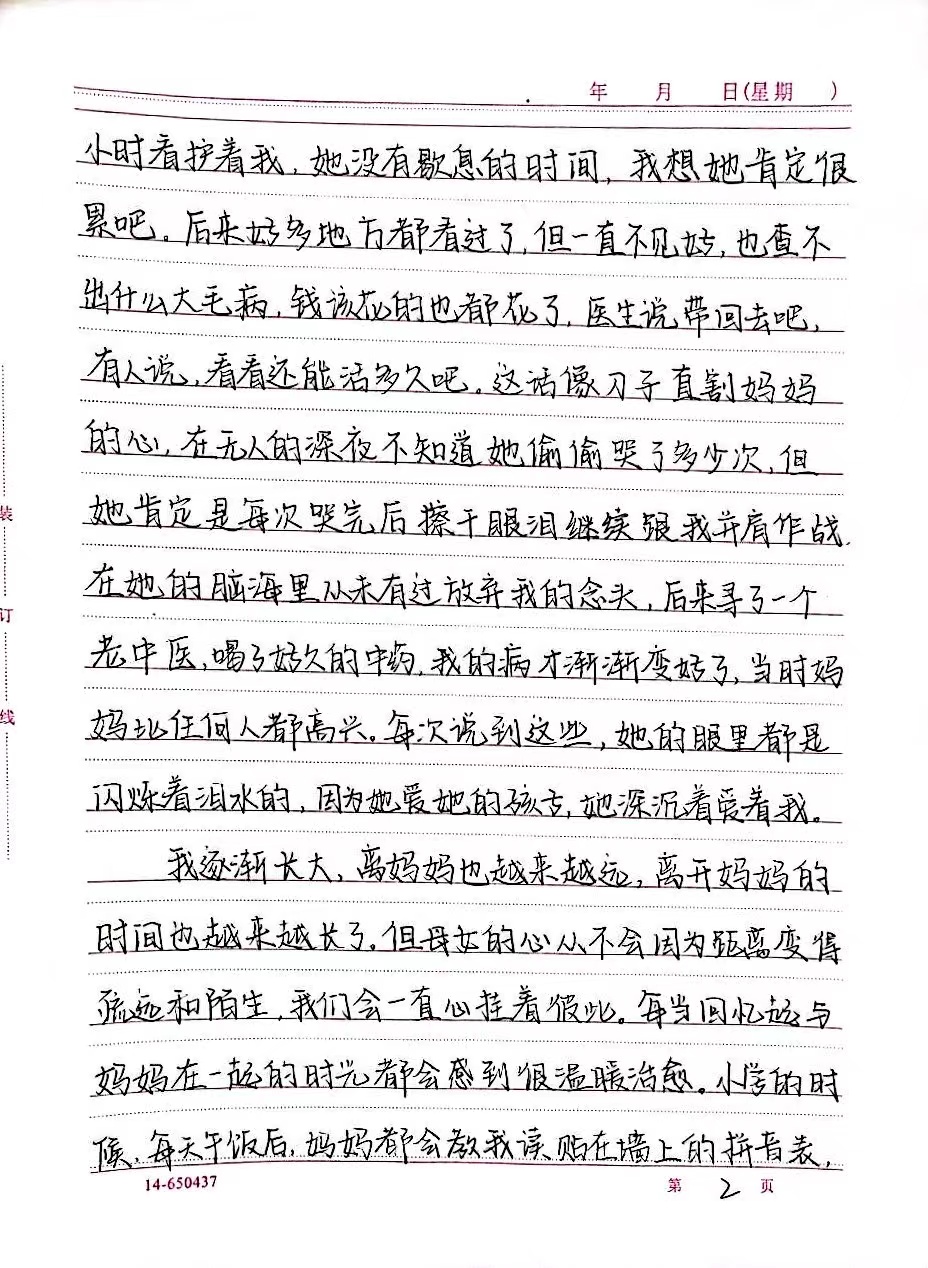 年 月 日(星期 )
小时看护着我,她没有歇息的时间,我想她肯定很
累吧。后来好多地方都看过了,但一直不见好,也查不
出什么大毛病,钱该花的也都花了,医生说带回去吧,
有人说,看看还能活多久吧。这话像刀子直割妈妈
的心,在无人的深夜不知道她偷偷哭了多少次,但
她肯定是每次哭完后擦干眼泪继续跟我并肩作战.
在她的脑海里从未有过放弃我的念头,后来寻了一个
老中医,喝了好久的中药,我的病才渐渐变好了,当时妈
妈比任何人都高兴。每次说到这些,她的眼里都是
闪烁着泪水的,因为她爱她的孩子,她深沉着爱着我。
我逐渐长大,离妈妈也越来越远,离开妈妈的
时间也越来越长了.但母女的心从不会因为距离变得
疏远和陌生,我们会一直心挂着彼此。每当回忆起与
妈妈在一起的时光都会感到很温暖治愈。小学的时
候,每天午饭后,妈妈都会教我读贴在墙上的拼音表,
14-650437
第 2 页
装
订
线